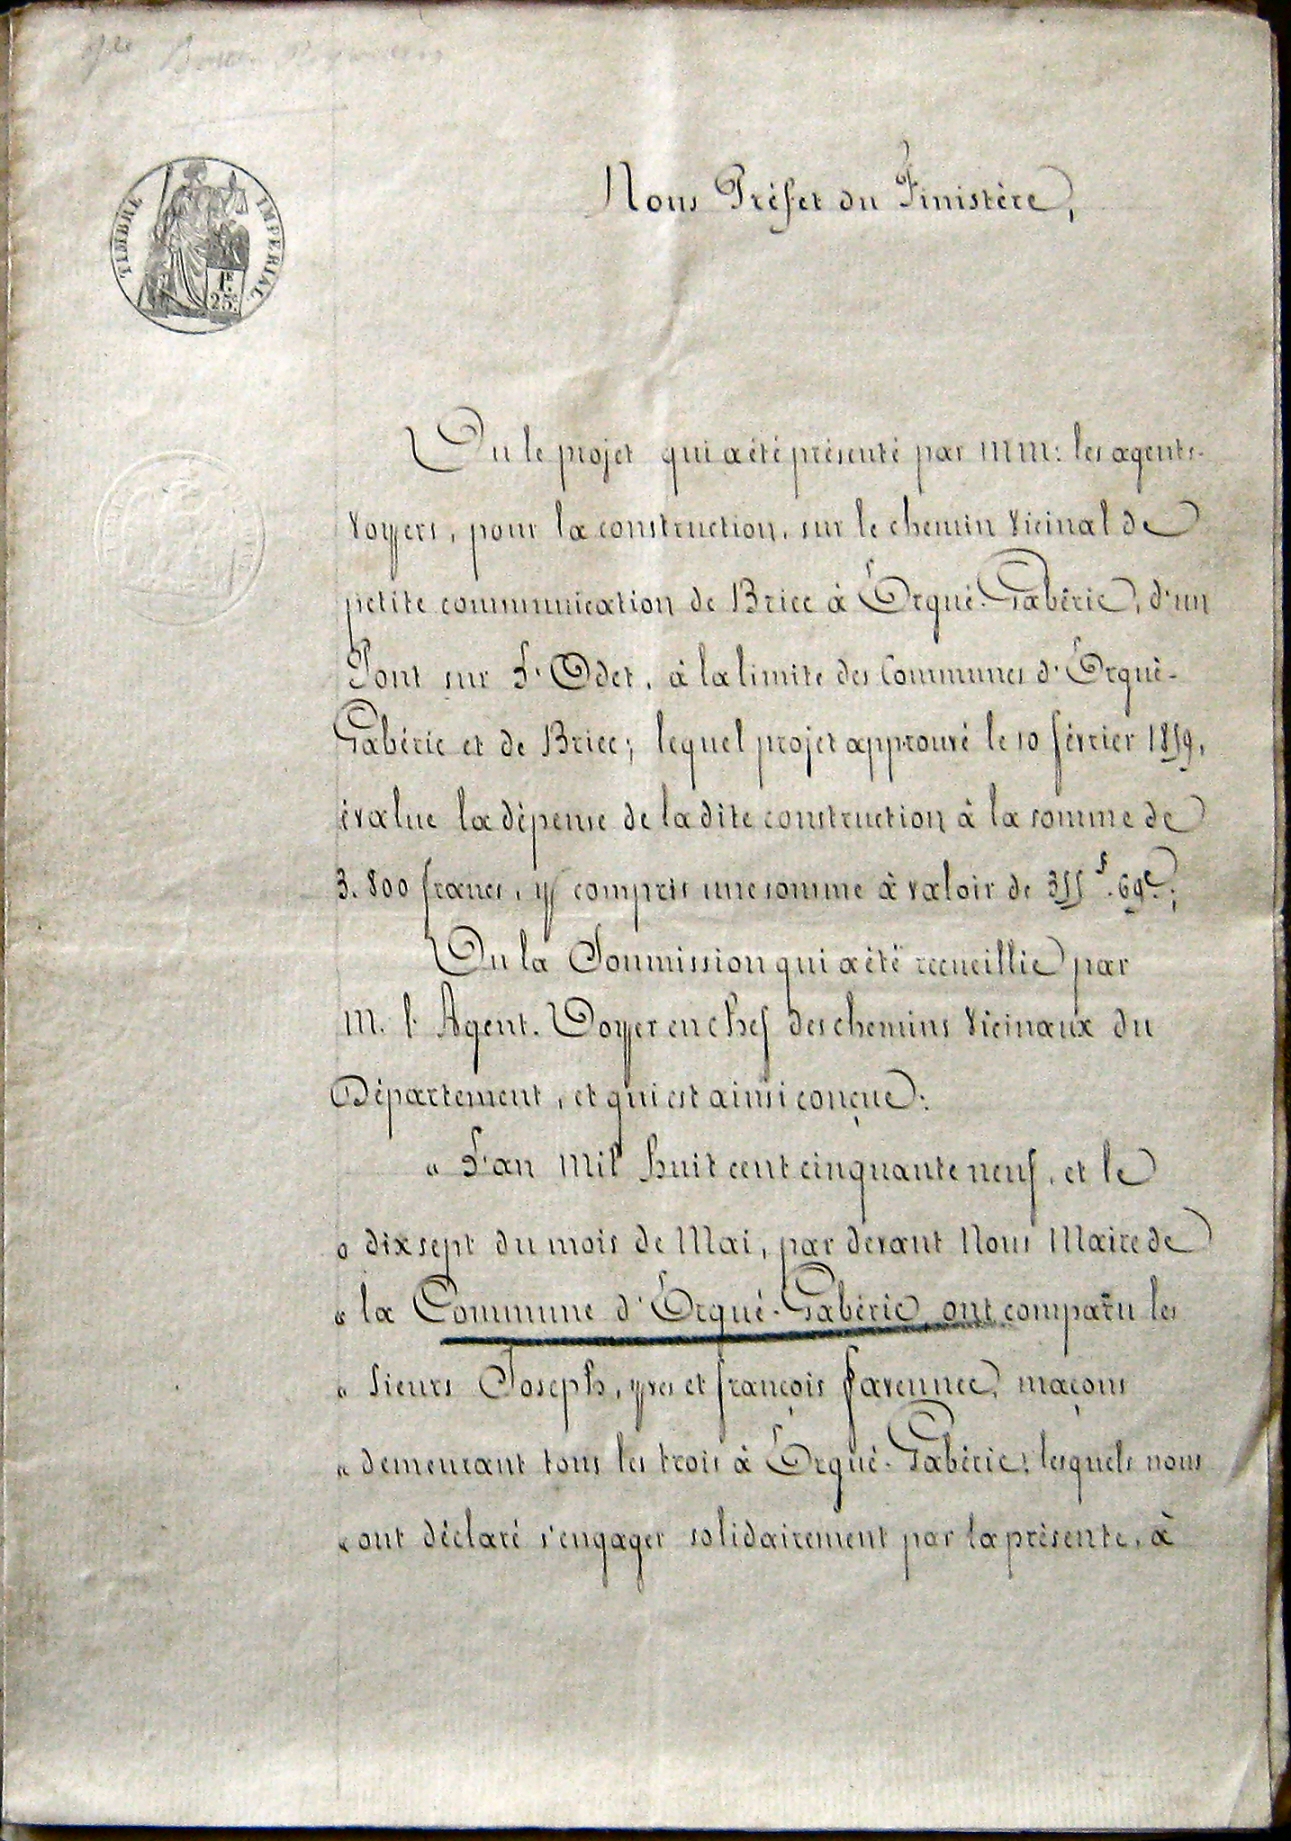 TIMBRE IMPERIAL
1F
25c
Nous Préfet du Finistère,
Vu le projet qui a été présenté par MM: les agents-
voyers, pour la construction, sur le chemin vicinal de
petite communication de Briec à Ergué-Gabéric, d'un
Pont sur l'Odet, à la limite des Communes d'Ergué-
Gabéric et de Briec; lequel projet approuvé le 10 février 1859,
évalue la dépense de la dite construction à la somme de
3.800 francs, y compris une somme à valoir de 355f.69c;
Vu la Soumission qui a été recueillie par
M. l'Agent-Voyer en chef des chemins vicinaux du
Département, et qui est ainsi conçue:
" L'an mil huit cent cinquante neuf, et le
" dix sept du mois de Mai, par devant Nous Maire de
" la Commune d'Ergué-Gabéric, ont comparu les
" Sieurs Joseph, yves et françois favennec, maçons
" demeurant tous les trois à Ergué-Gabéric; lesquels nous
" ont déclaré s'engager solidairement par la présente, à